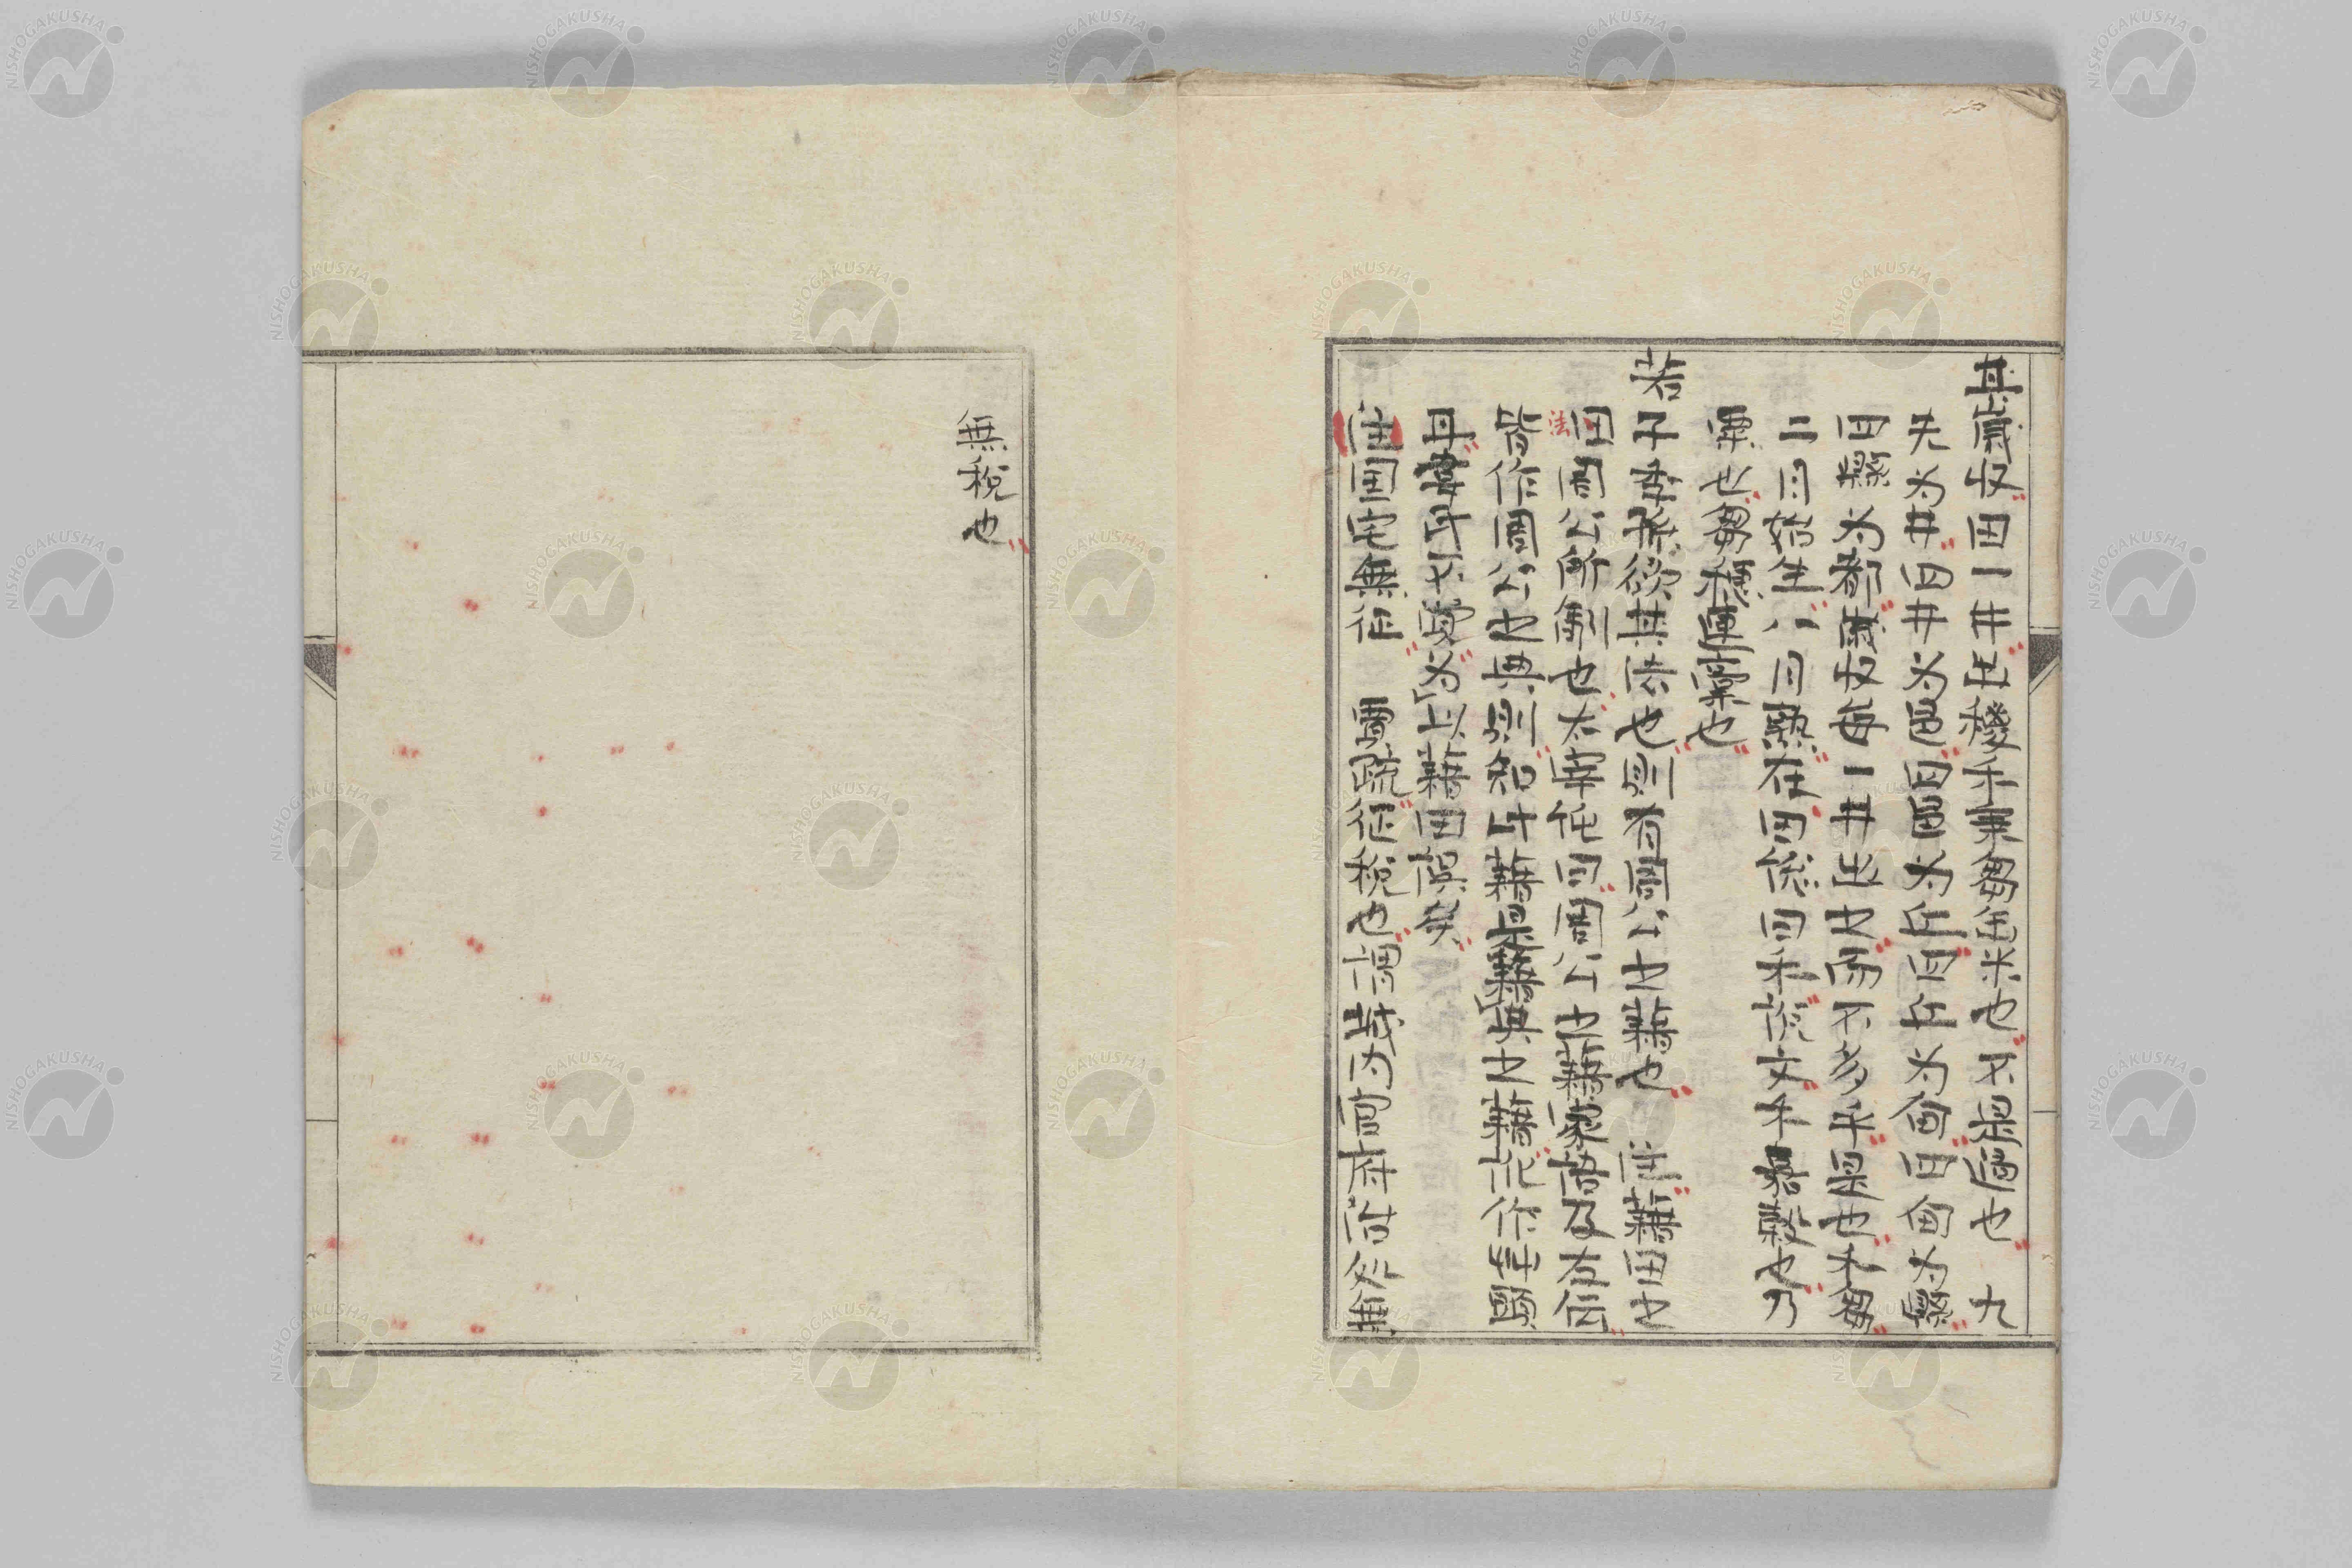 其歲收田一井出稯禾秉芻缶米也不是過也 九
夫为井四井为邑四邑为丘四丘为甸四甸为縣
四縣为都歲收每一井出之而不多乎是也禾芻
二月始生八月熟在田係曰禾說文禾嘉穀也乃
粟也芻穗連稾也
若
子季孫欲其法也則有周公之藉也 注藉田之
法
田周公所制也太宰純曰周公之藉家語及左传
皆作周公之典則知此藉是籍典之籍非作艸頭
毋韋氏不覚为以藉田誤矣
注国宅無征 賈疏征税也謂城内官府治処無
無税也
NISHOGAKUSHA